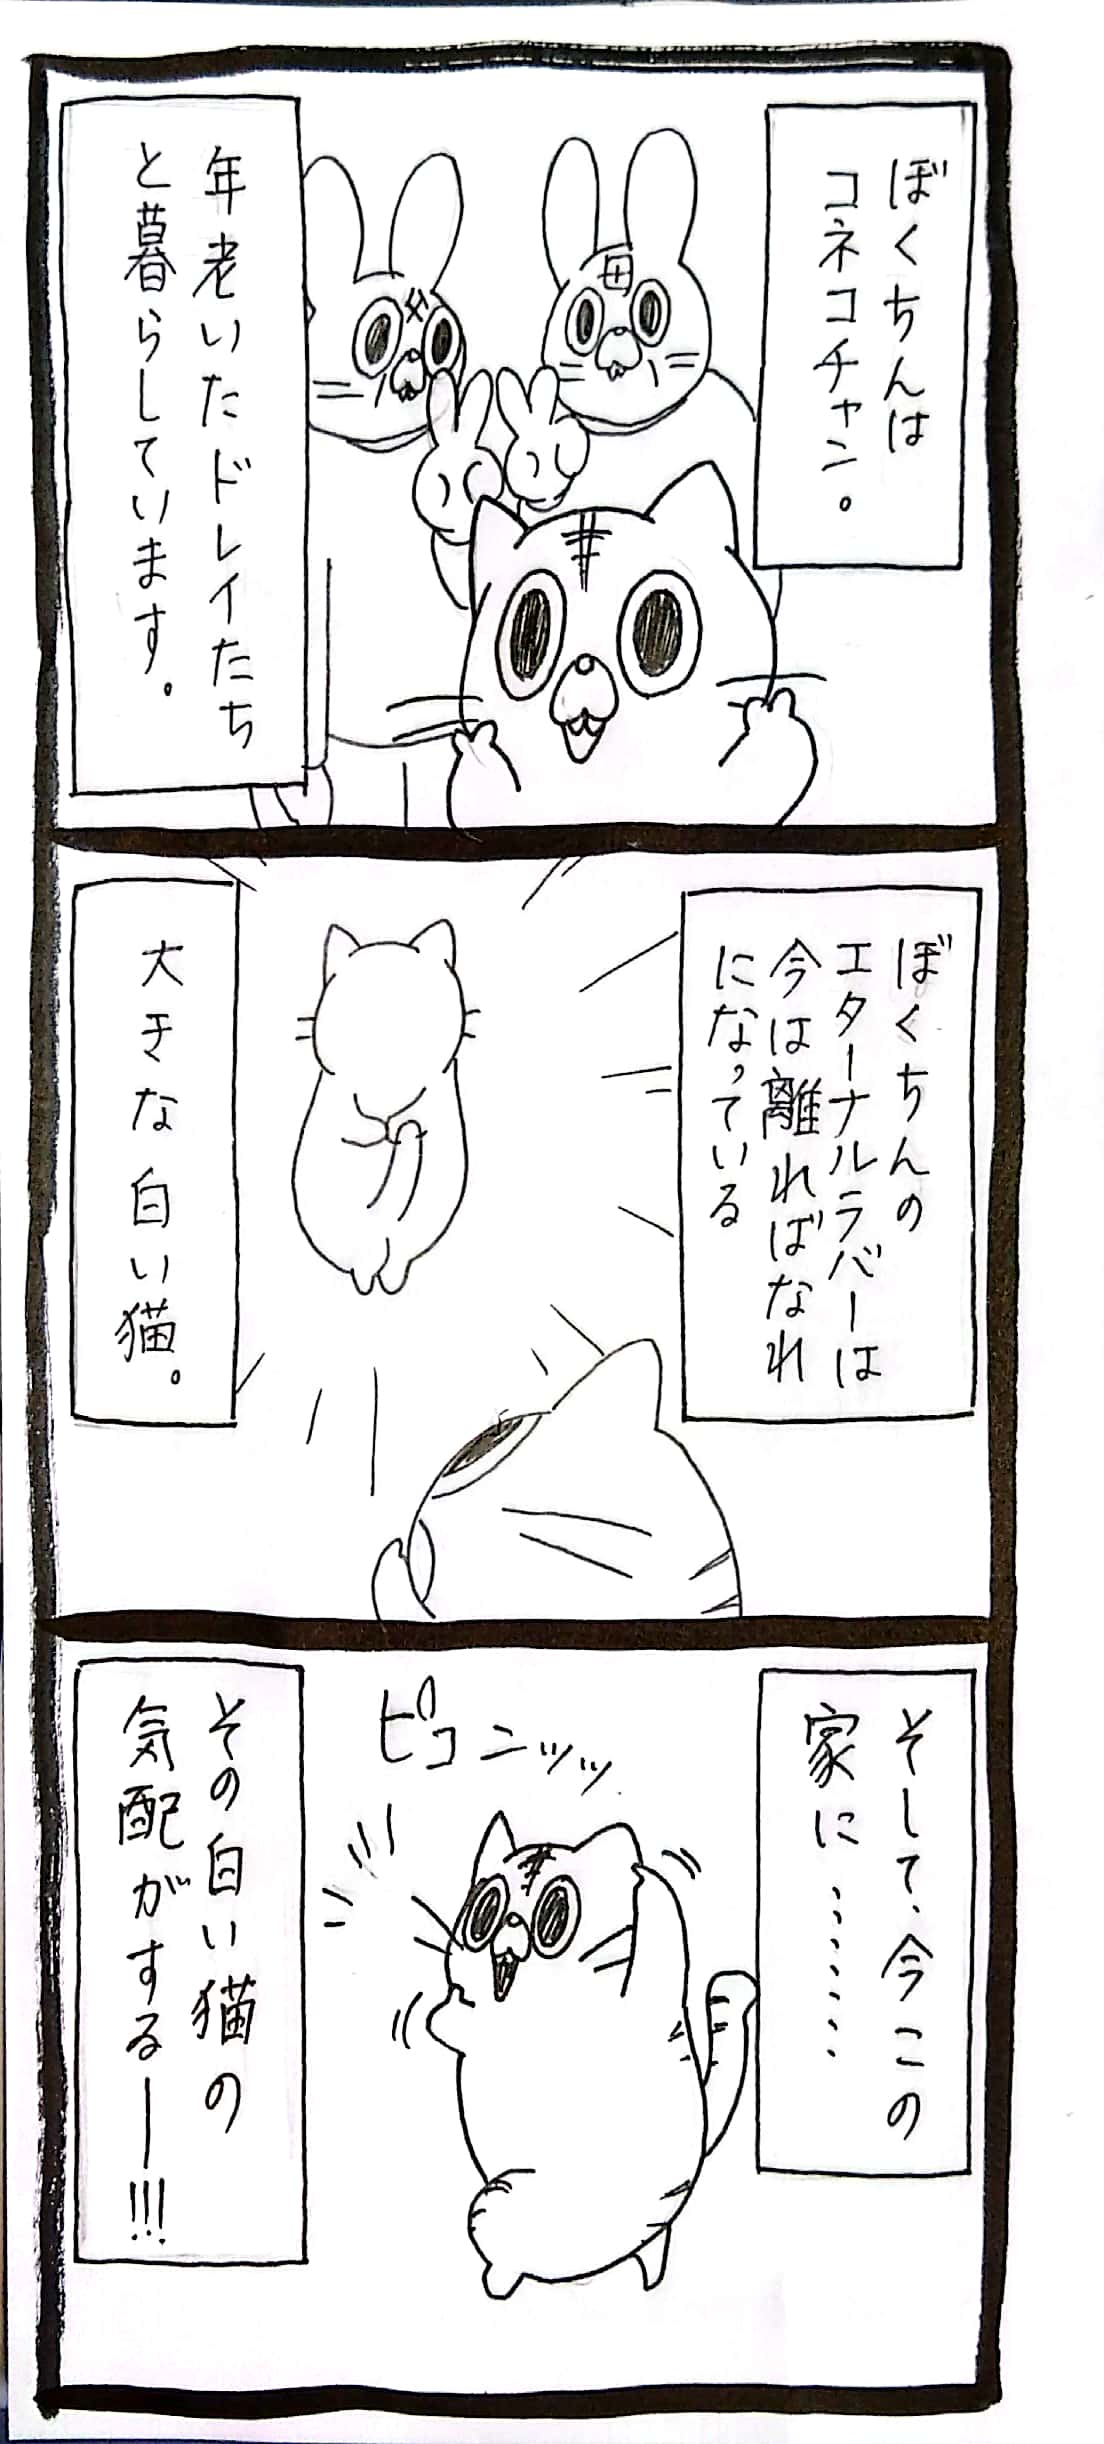 ぼくちんは
コネコチャン。
母
父
年老いたドレイたち
と暮らしています。
ぼくちんの
エターナルラバーは
今は離ればなれ
になっている
大きな白い猫。
そして、今この
家に……
ピコーンッッ
その白い猫の
気配がするー!!!